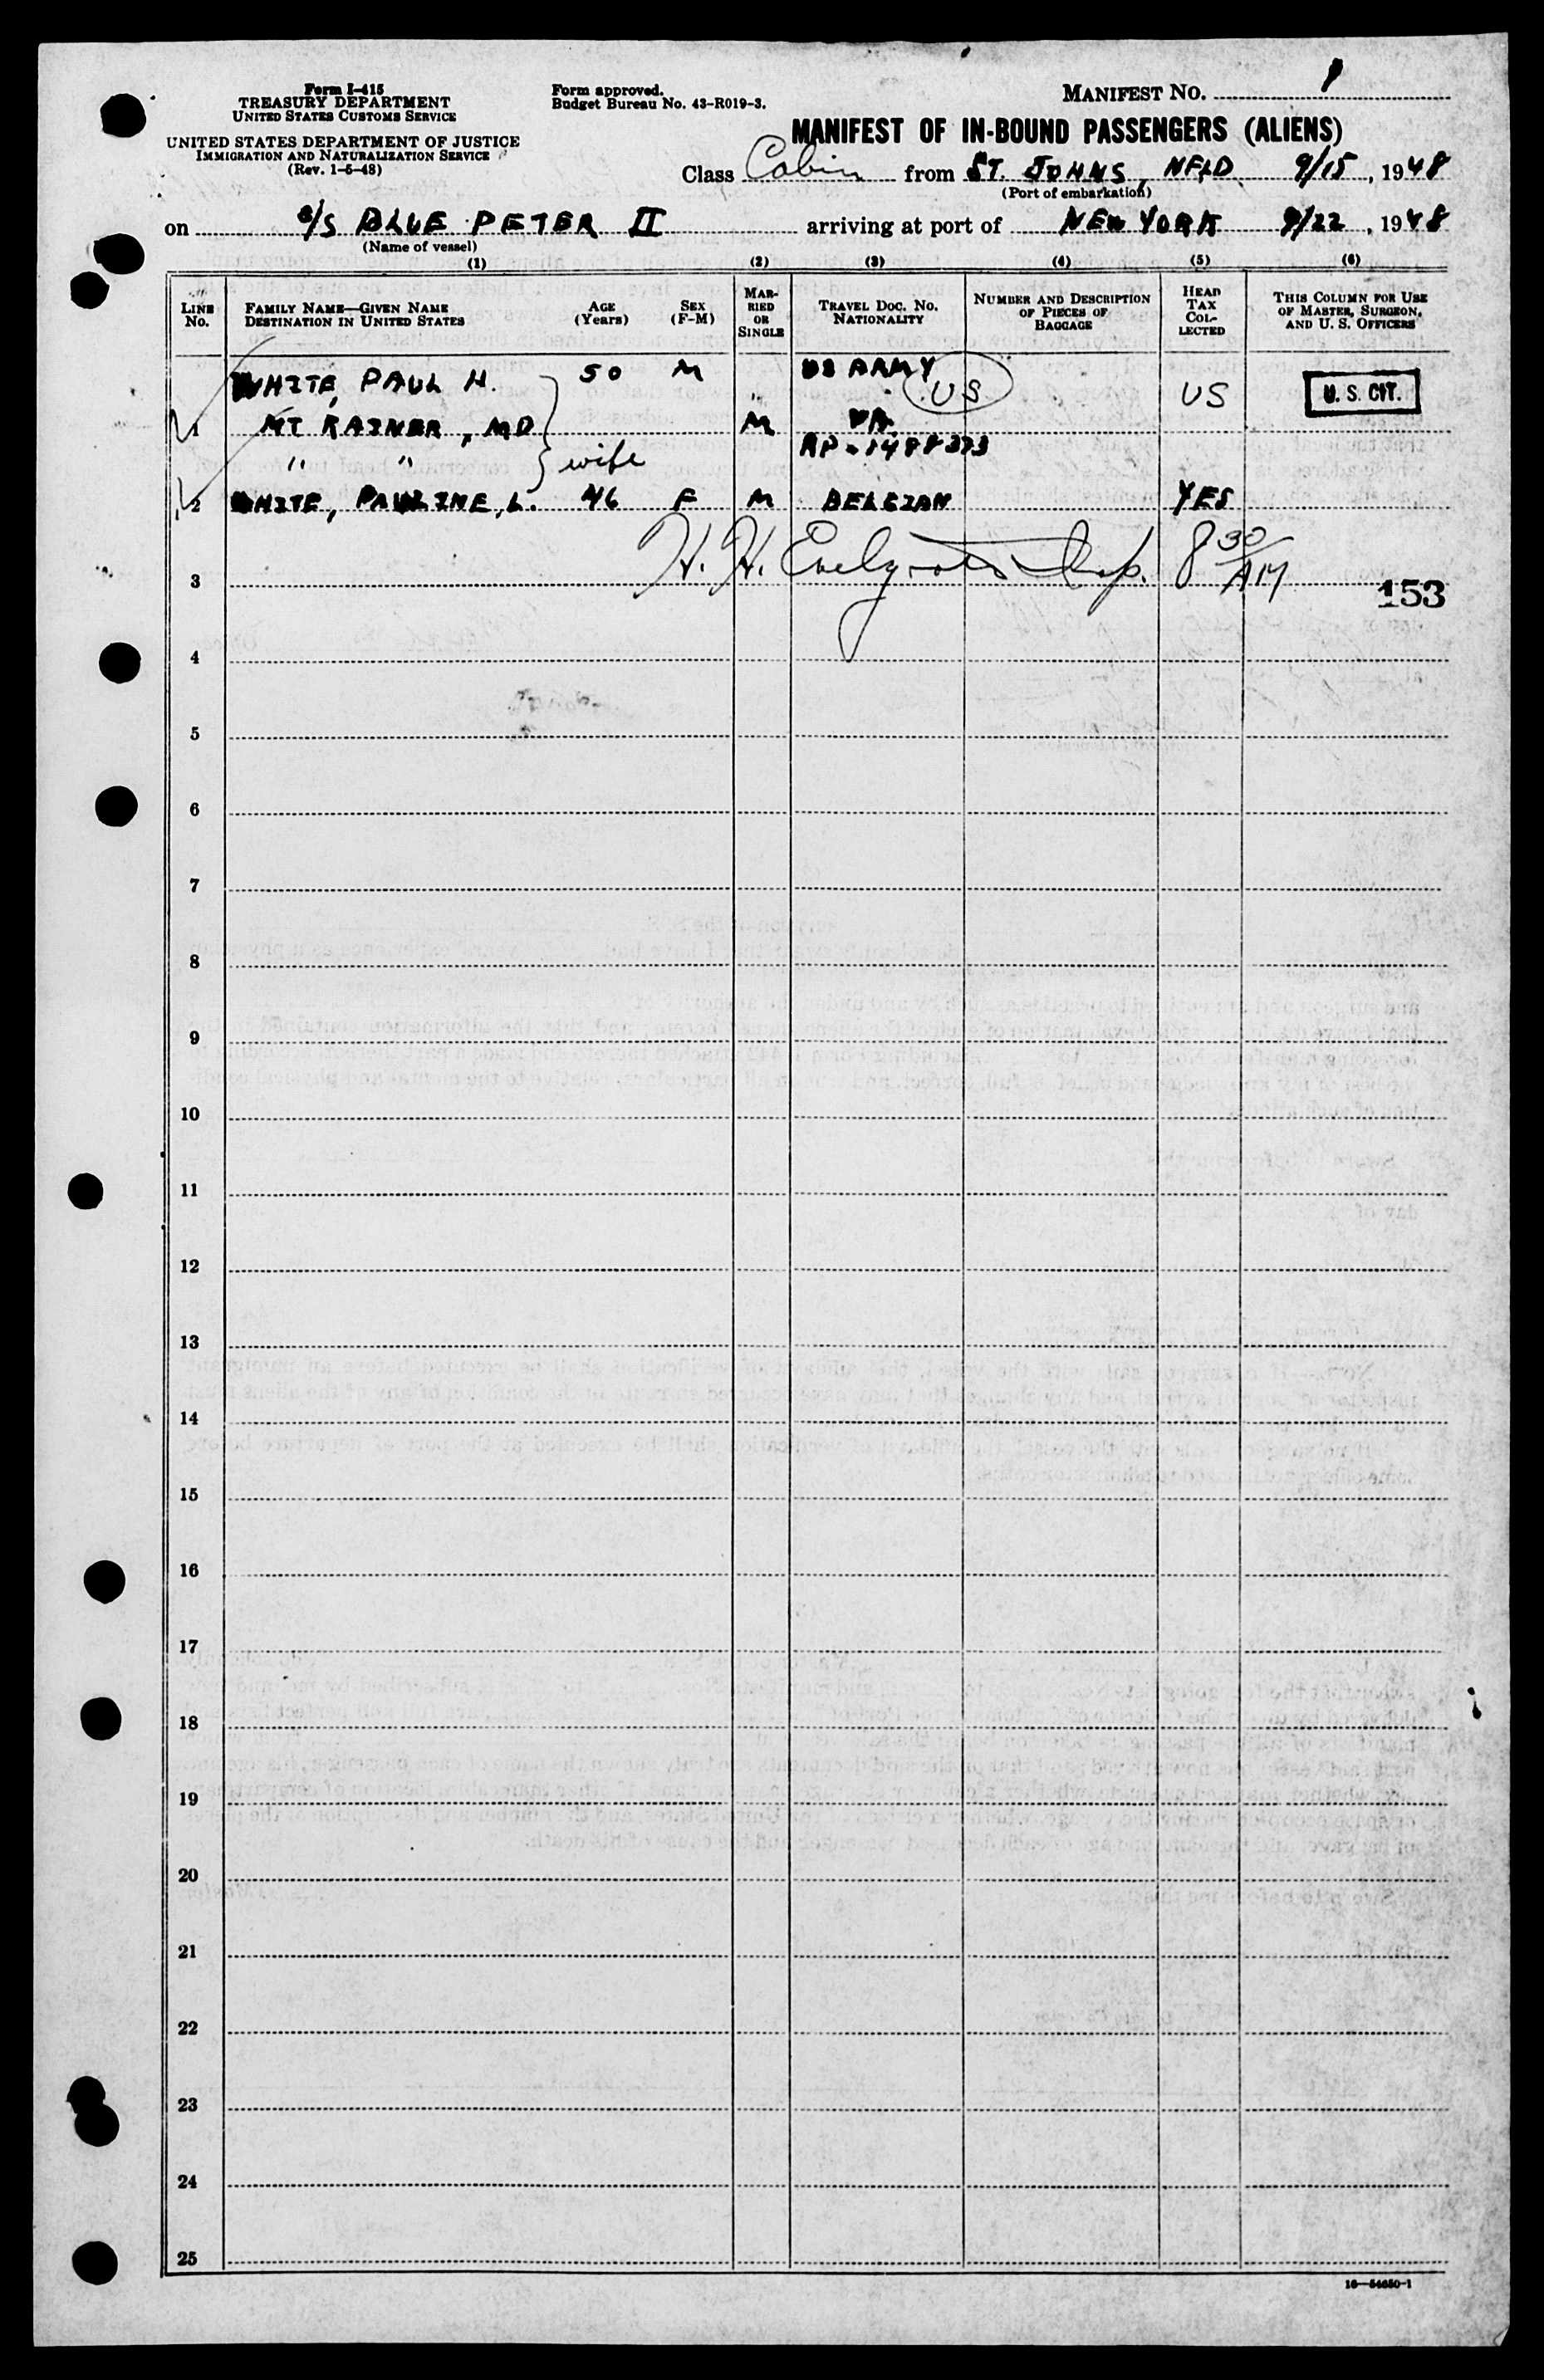 Form I-415
TREASURY DEPARTMENT
UNITED STATES CUSTOMS SERVICE
UNITED STATES DEPARTMENT OF JUSTICE
IMMIGRATION AND NATURALIZATION SERVICE
(Rev. 1-5-48)
Form approved.
Budget Bureau No. 43-R019-3.
MANIFEST NO. 1
MANIFEST OF IN-BOUND PASSENGERS (ALIENS)
Class Cabin from ST. JOHNS, NFLD 9/15, 1948
(Port of embarkation)
on S/S BLUE PETER II arriving at port of NEW YORK 9/22, 1948
(Name of vessel)
(1) (2) (3) (4) (5) (6)
LINE No.
FAMILY NAME—GIVEN NAME
DESTINATION IN UNITED STATES
AGE (Years)
SEX (F-M)
MARRIED OR SINGLE
TRAVEL DOC. NO.
NATIONALITY
NUMBER AND DESCRIPTION OF PIECES OF BAGGAGE
HEAD TAX COLLECTED
THIS COLUMN FOR USE OF MASTER, SURGEON, AND U. S. OFFICERS
WHITE, PAUL H. 50 M US ARMY US US U. S. CIT.
1 MT RAINER, MD M
" " wife RP-1488373
2 WHITE, PAULINE, L. 46 F M BELGIAN YES
H. H. Insp. 8 30/AM
3 153
4
5
6
7
8
9
10
11
12
13
14
15
16
17
18
19
20
21
22
23
24
25
16—54650-1